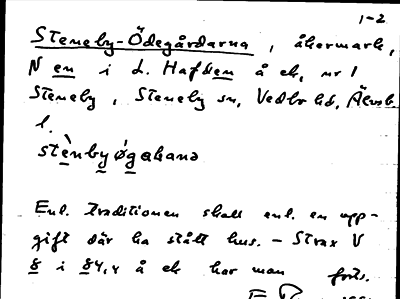 1-2
Steneby-Ödegårdarna, åkermark,
N en i d. Hafden å ek, nr 1
Steneby, Steneby sn, Vedbo hd, Älvsb
l.
stènbyøgahana
Enl. traditionen skall enl. en upp-
gift där ha stått hus. - Strax V
8 i 84,4 å ek har man forts.